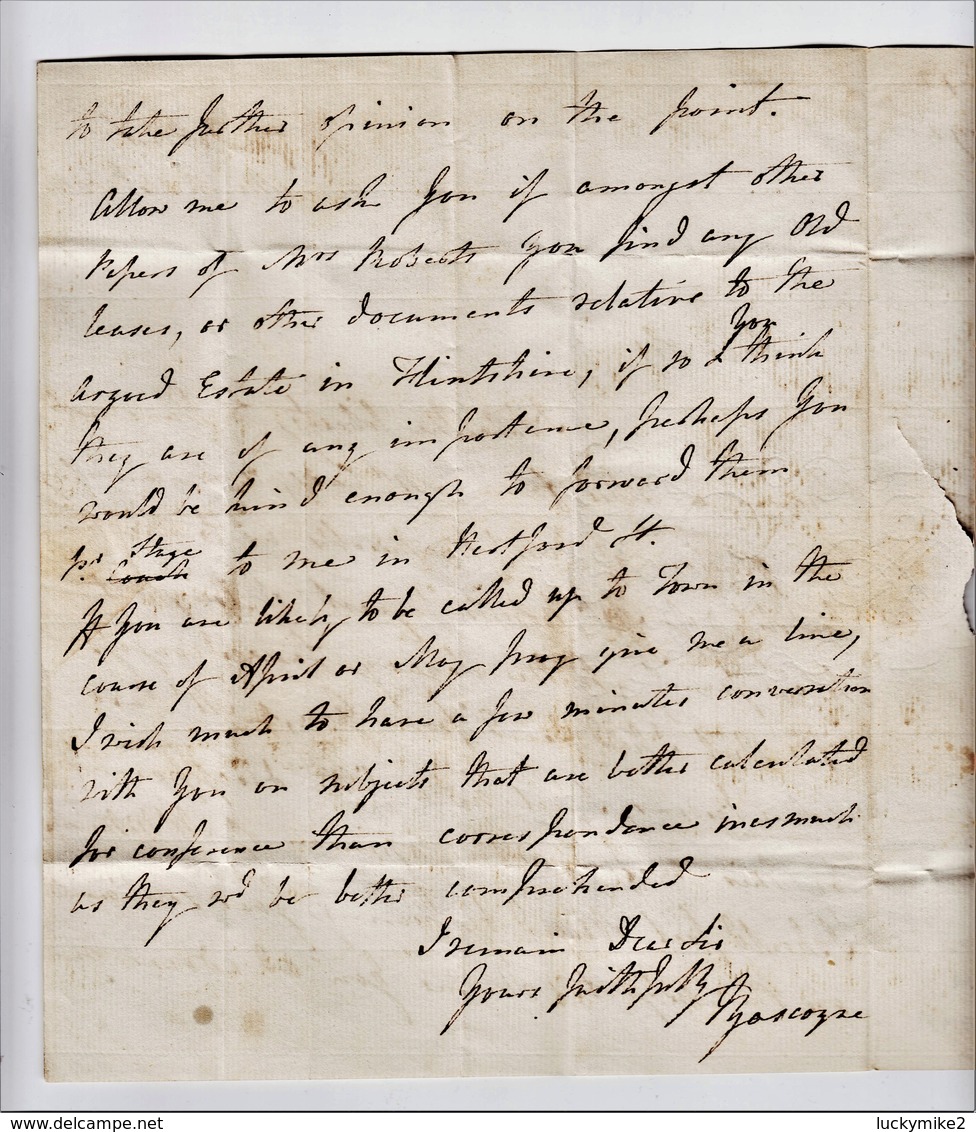 to take further opinion on the point.
Allow me to ask you if amongst other
Papers of Mrs Roberts you find any Old
leases, or other documents relative to the
you
Argoed Estate in Flintshire, if so & think
they are of any importance, perhaps you
would be kind enough to forward them
Stage
pr Coach to me in Hertford St.
If you are likely to be called up to Town in the
course of April or May pray give me a line,
I wish much to have a few minutes conversation
with you on subjects that are better calculated
for conference than correspondance inasmuch
as they wd be better comprehended
I remain Dear Sir
Yours faithfully
Gascoyne
www.delcampe.net
luckymike2